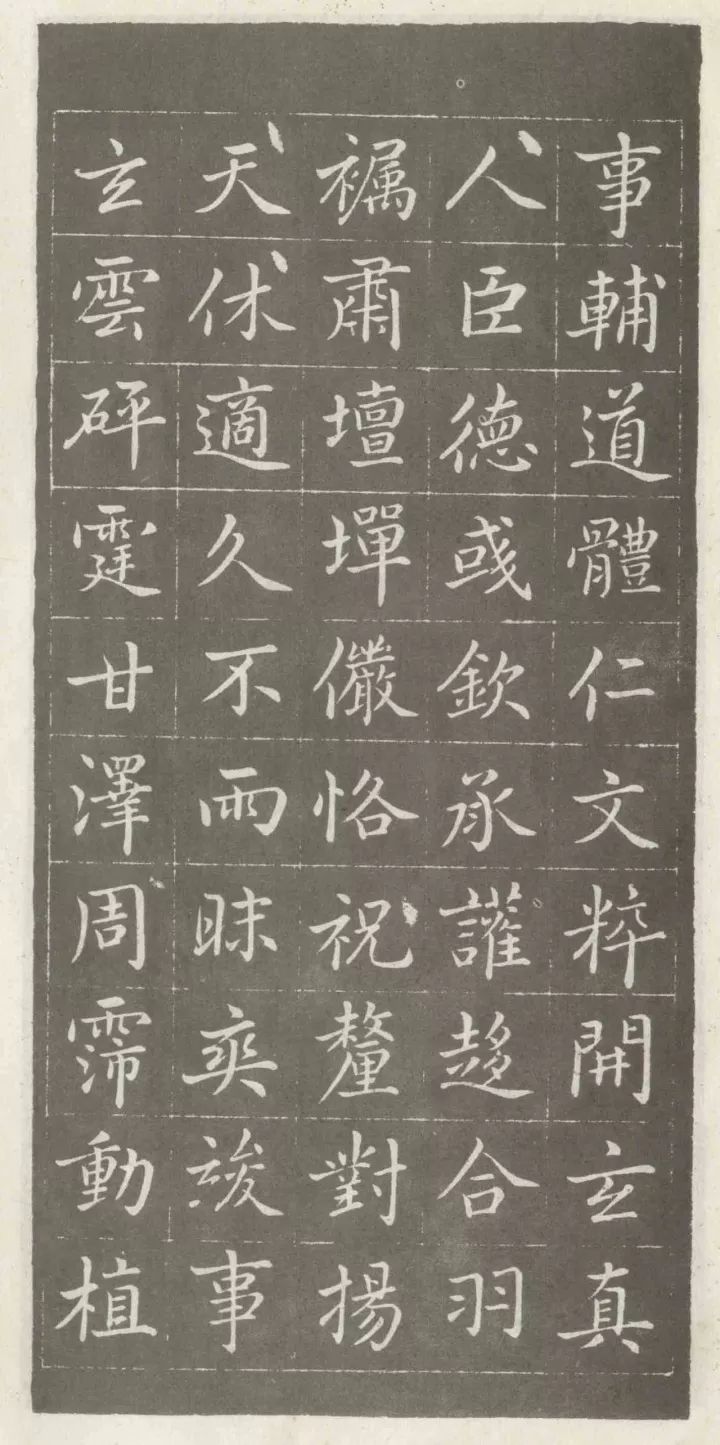 事輔道體仁文粹開玄真
人臣德彧欽承讙趍合羽
襡肅壇墠儼恪祝釐對揚
天休適久不雨眜爽竣事
玄雲砰霆甘澤周霈動植